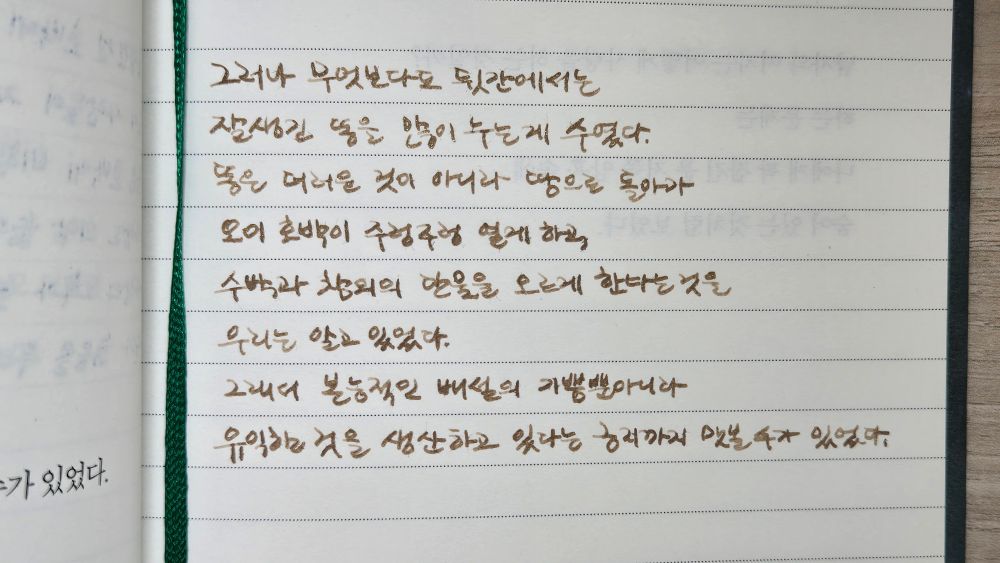 그러나 무엇보다도 뒷간에서는
잘생긴 똥을 많이 누는게 수였다.
똥은 더러운 것이 아니라 땅으로 돌아가
오이 호박이 주렁주렁 열게 하고,
수박과 참외의 단물을 오르게 한다는 것을
우리는 알고 있었다.
그래서 본능적인 배설의 기쁨뿐아니라
유익한 것을 생산하고 있다는 긍지까지 맛볼 수가 있었다.
수가 있었다.